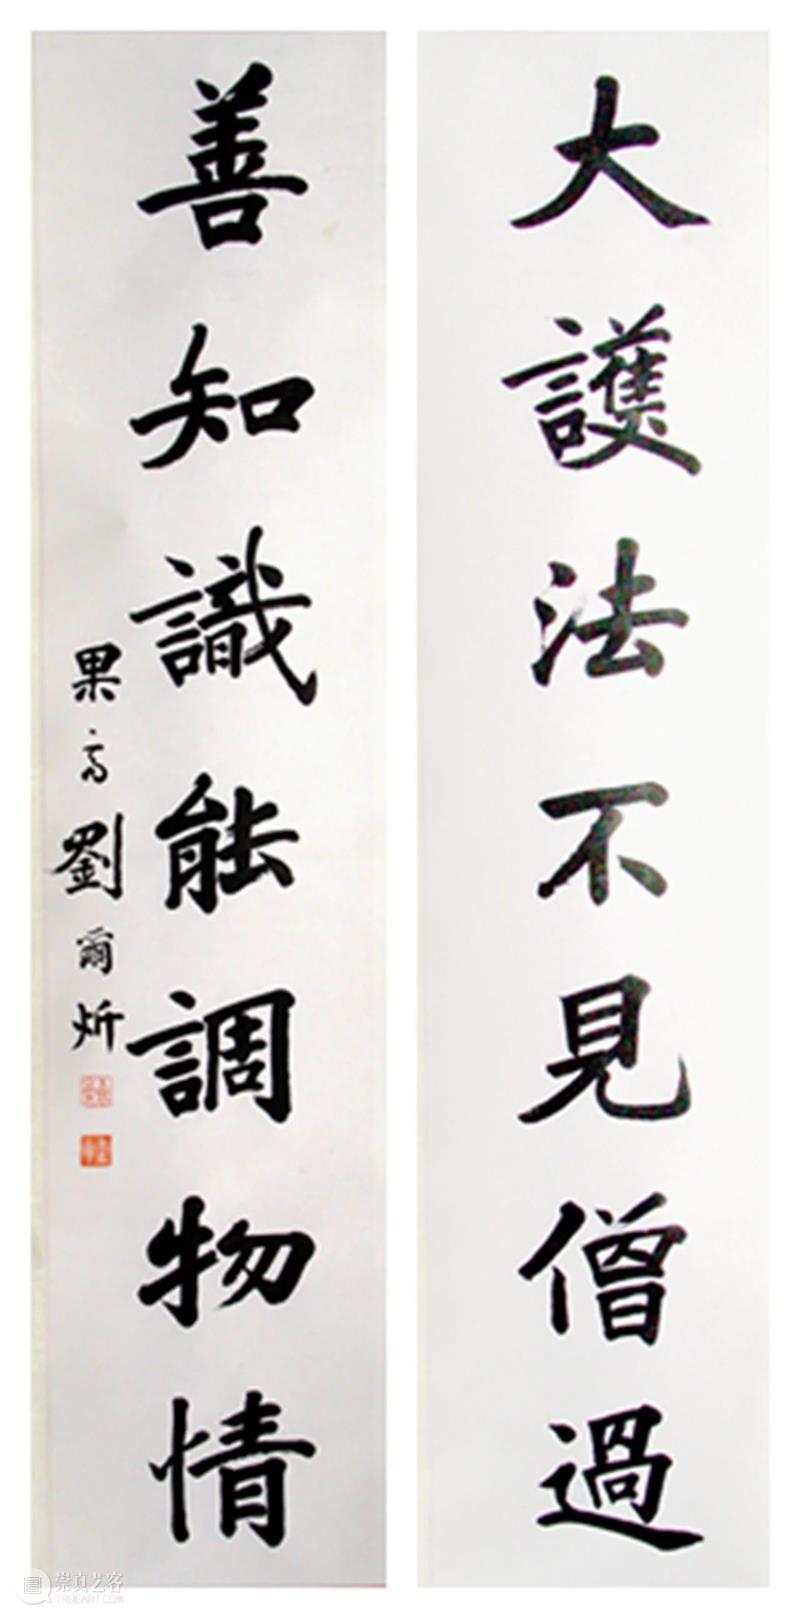 大護法不見僧過
善知識能調物情
果齋劉爾炘
崇真艺客
TRUEART.COM